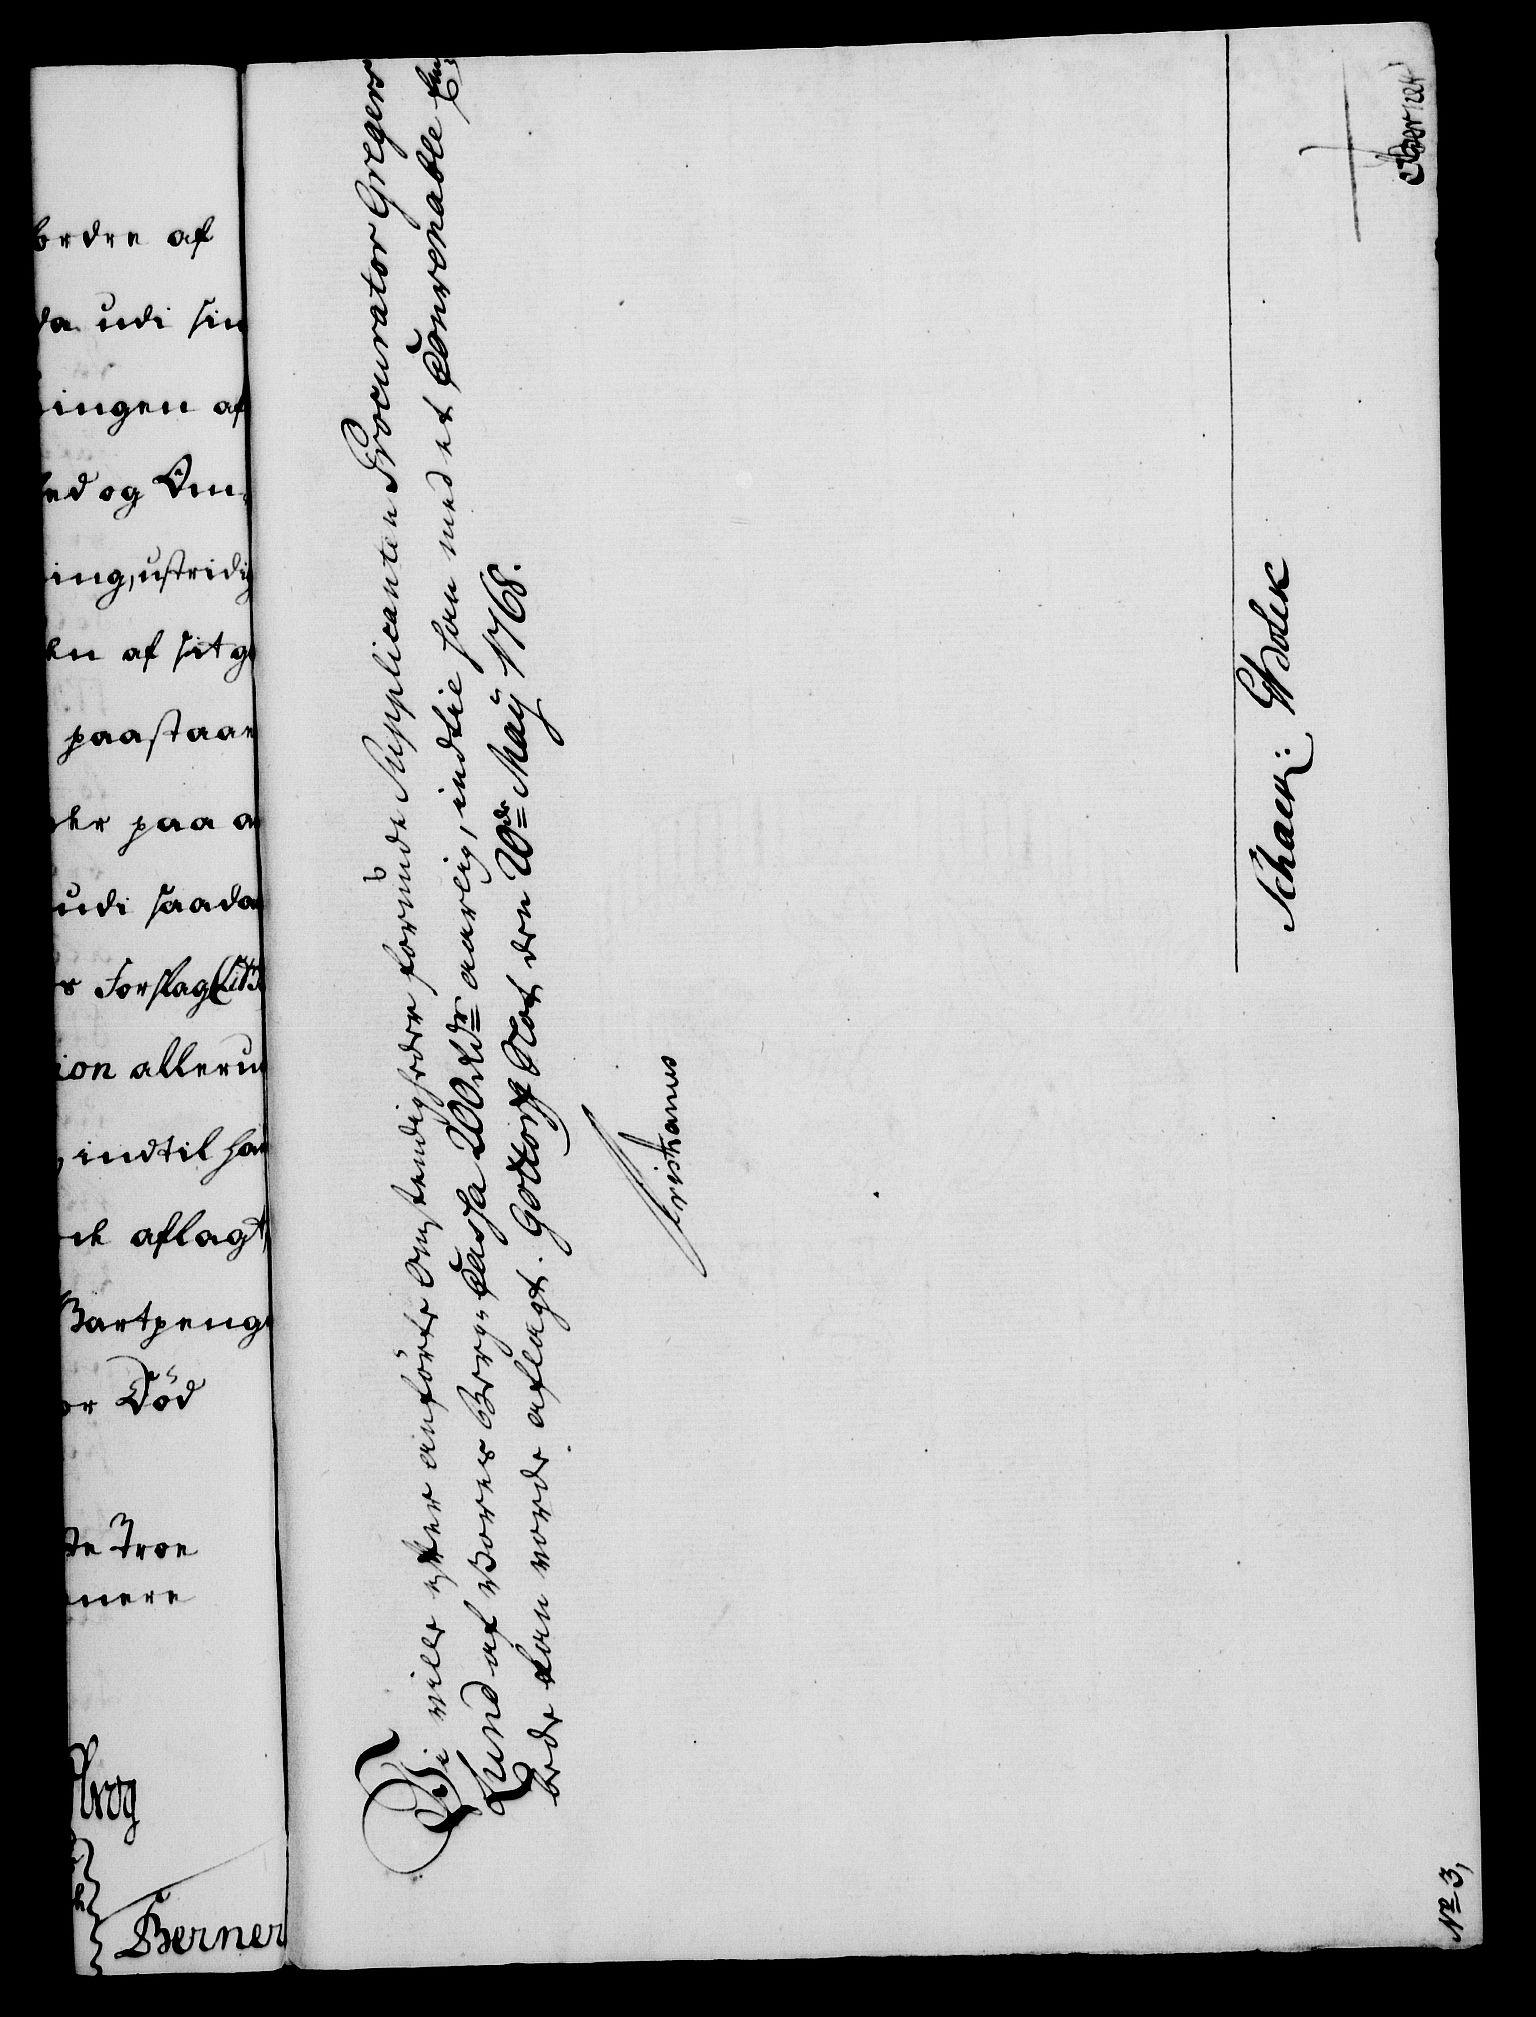 ordre af
da udi sin
ningen af
hed og Om-
ing, ustridig
en af sit g
paastaae
ler paa a
udi saada
s Forslag (Lit
ion alleru
, indtil ha
aflagt,
Vartpeng
or Död
te Troe
nere
Berner
Vi ville efter anförte Omstendigheder forunde Supplicanten Procurator Gregers
Lund af Vores Berg-Cassa 200 rdr aarlig, indtil han med et Convenable Em
bede kan vorde aflagt. Gottorff Slot den 20de Maÿ 1768.
Christianus
Schack: G Holck
Berner
No 3,